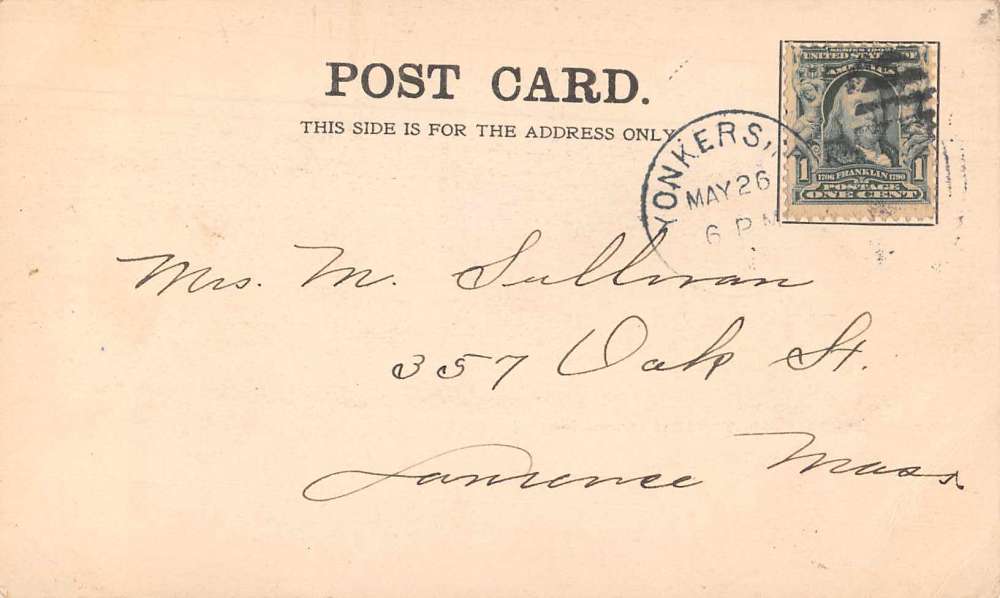 POST CARD.
THIS SIDE IS FOR THE ADDRESS ONLY
UNITED STATES OF
AMERICA
1 1706 FRANKLIN 1790 1
POSTAGE
ONE CENT
YONKERS,
MAY 26
6 PM
Mrs. M. Sullivan
357 Oak St.
Lawrence Mass.